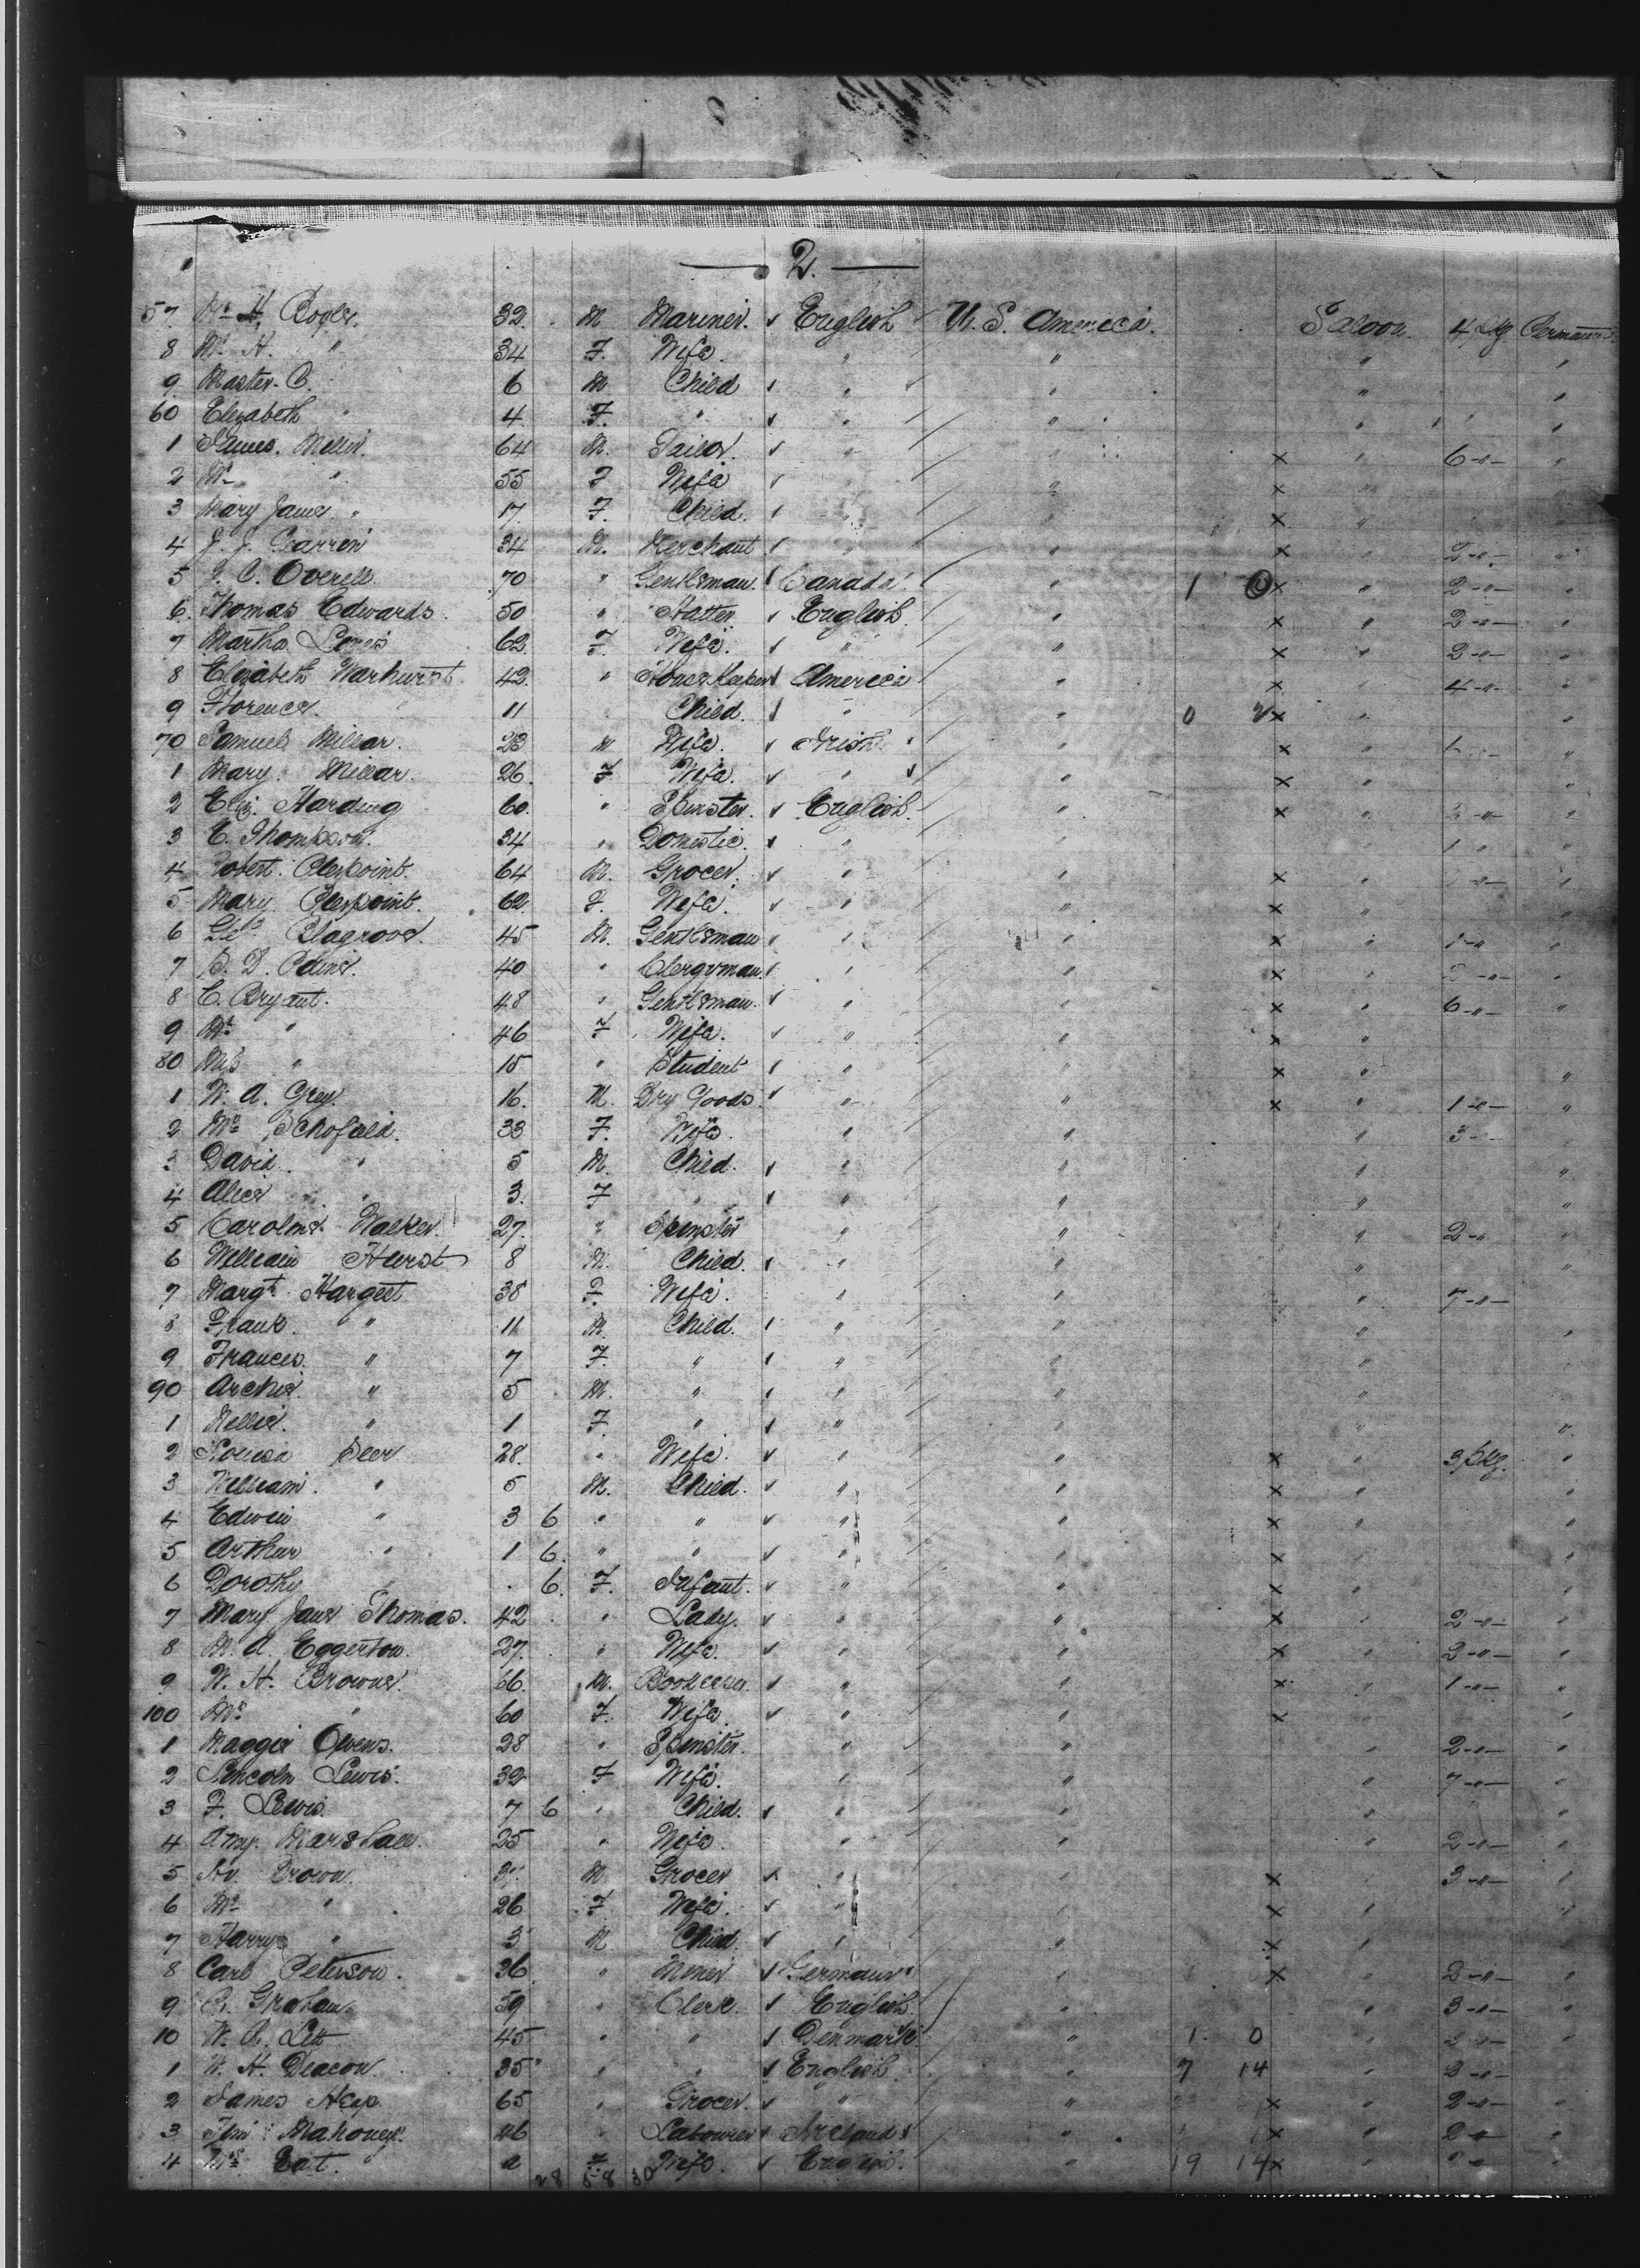 — 2. —
57. Mr H. Boyle. 32. M Mariner. English U. S. America. Saloon. 4 Pkg
8 Mrs H. " 34 F. Wife. " " "
9 Master. C. 6 M Child " " "
60 Elizabeth " 4 F. " " " "
1 James. 64 M. Tailor. " " × 6 -"- "
2 Mrs " 55 F Wife " " × "
3 Mary Jane. " 17. F. Child. " " × "
4 J. J. 34 M. Merchant " " × 2 -"- "
5 J. C. Overell. 70 " Gentleman. Canada " 1 0 × " 2 -"- "
6. Thomas Edwards. 50 " Hatter English. " × " 2 -"- "
7 Martha Lewis 62. F. Wife. " " × " 2 -"- "
8 Elizabeth Warhurst. 42. " House Keeper America " × " 4 -"- "
9 Florence. " 11 Child. " " 0 × " "
70 Samuel Millar. 28 M Wife. Irish " × " "
1 Mary. Millar. 26. F Wife. " " × "
2 Eliz. Harding 60. " Spinster. English. " × " "
3 E. Thompson. 34 " Domestic. " " 1 "
4 Robert. 64 M. Grocer. " " × " "
5 Mary 62. F. Wife. " " × " "
6 Geo. Blagrove. 45 M. Gentleman " " × " 1 -"- "
7 40 " Clergyman. " " × " "
8 C. Bryant. 48 " Gentleman. " " × " 6 -"- "
9 Mrs " 46 F Wife. " " × "
80 Miss " 15 " Student " " × " "
1 W. A. Grey. 16. M. Dry Goods. " " × " 1 -"- "
2 Mrs Schofield. 33 F. Wife. " " " 3
3 David. " 5 M. Child. " " " "
4 Alice " 3. F " " " " "
5 Caroline Walker. 27. " Spinster " " " 2 -"- "
6 William Hurst 8 M. Child. " " " "
7 Margt. Hargest 38 F. Wife. " " " 7 -"-
8 Frank. " 11 M. Child. " " " "
9 Frances. " 7 F. " " " "
90 Archie. " 5 M. " " " "
1 Nellie. " 1 F. " " " " "
2 Louisa 28. " Wife. " " × " 3 pkg. "
3 William. " 5 M. Child. " " × " "
4 Edwin " 3 6 " " " " × " "
5 Arthur " 1 6. " " " " × " "
6 Dorothy " . 6. F. Infant. " " × " "
7 Mary Jane Thomas. 42 " Lady. " " × " 2 -"- "
8 M. A. Eggerton. 27. " Wife. " " × " 2 -"- "
9 W. H. Browne. 66. M. " " × " 1 -"- "
100 Mrs " 60 F. Wife " " × " "
1 Maggie Owens. 28 " Spinster. " " " 2 -"- "
2 Lincoln Lewis. 32 F Wife. " " " 7 -"- "
3 F. Lewis. 7 6 " Child. " " " "
4 Amy. Marshall. 25 " Wife. " " " 2 -"- "
5 Brown. M. Grocer " " × " 3 -"- "
6 Mrs " 26 F. Wife. " " × " "
7 Harry " 3 M Child. " " × " "
8 Carl Peterson. 36 " Miner German " × " 2 -"- "
9 Graham 59 " Clerk. English. " " 3 -"- "
10 W. Lett 45 " " Denmark " 1. 0 " 2 -"- "
1 W. H. Deacon. 35 " " English. " 7 14 " 2 -"-
2 James Heap 65 " Grocer. " " × " 2 -"- "
3 Mahoney. 46 " Labourer Ireland " × " 2 -"- "
4 Mrs a F Wife. English. " 19 14 × " "
28 58 30